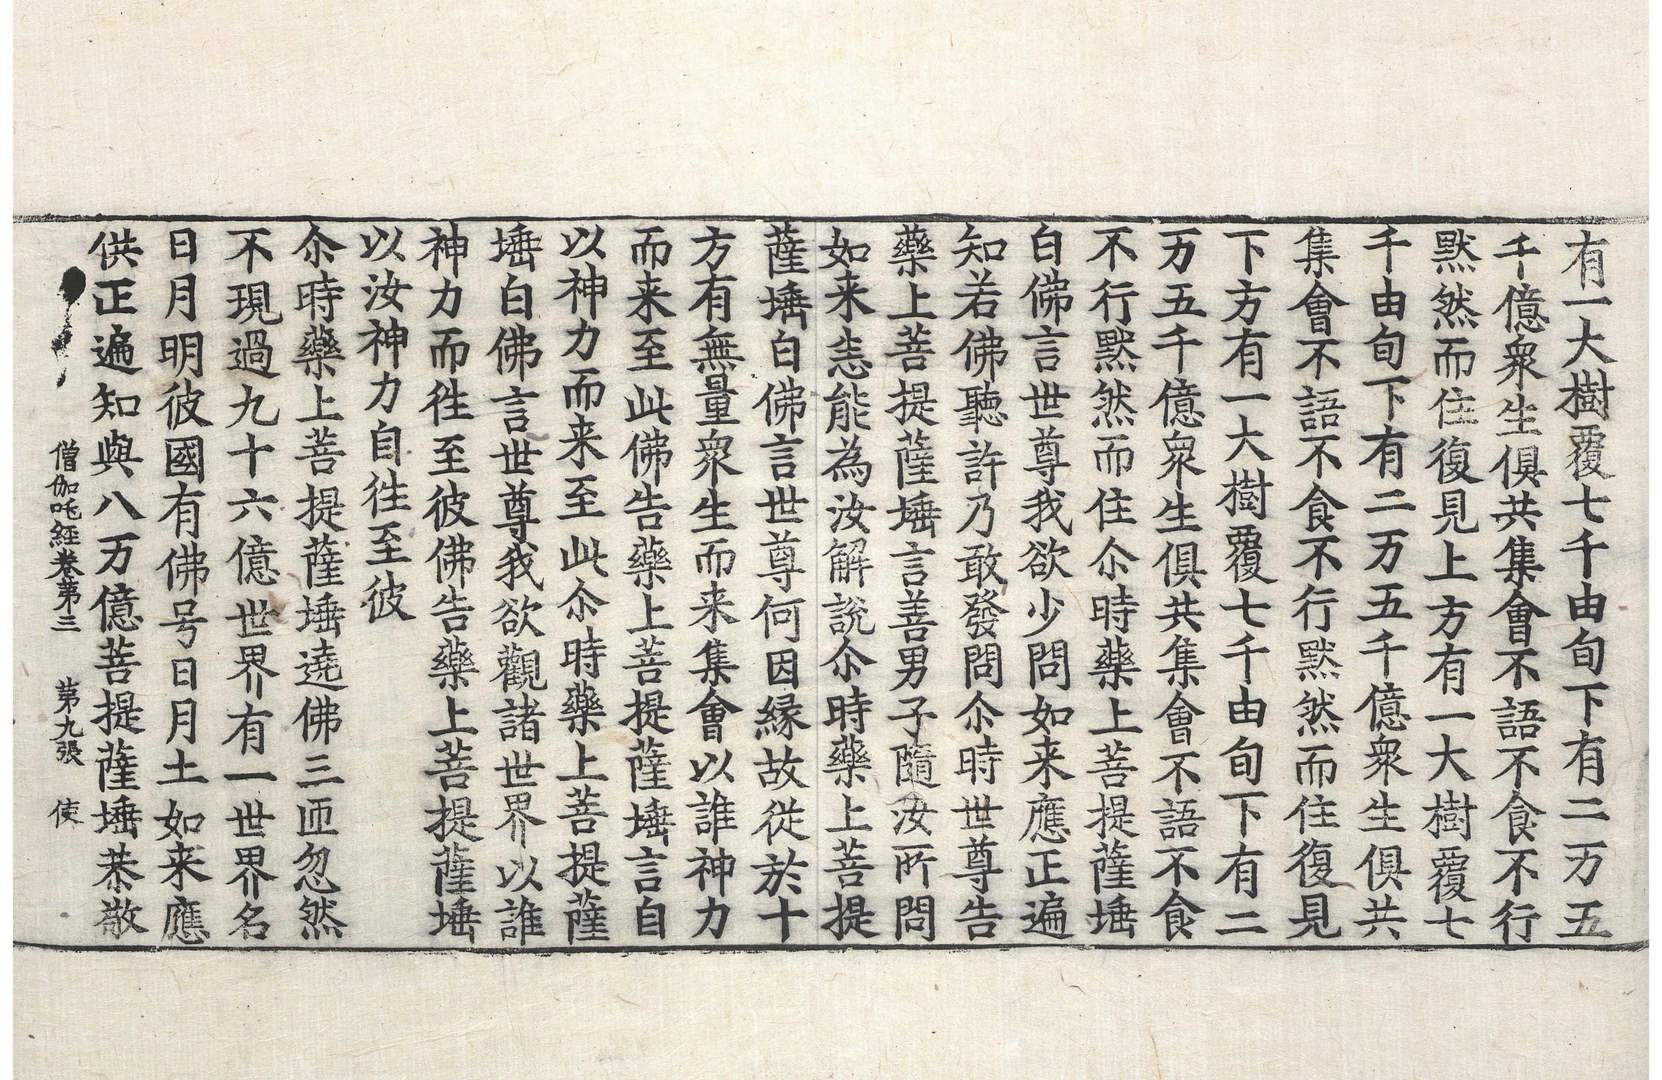 有一大樹覆七千由旬下有二万五
千億衆生俱共集會不語不食不行
默然而住復見上方有一大樹覆七
千由旬下有二万五千億衆生俱共
集會不語不食不行默然而住復見
下方有一大樹覆七千由旬下有二
万五千億衆生俱共集會不語不食
不行默然而住尒時藥上菩提薩埵
白佛言世尊我欲少問如来應正遍
知若佛聽許乃敢發問尒時世尊告
藥上菩提薩埵言善男子隨汝所問
如来悉能為汝解說尒時藥上菩提
薩埵白佛言世尊何因緣故從於十
方有無量衆生而来集會以誰神力
而来至此佛告藥上菩提薩埵言自
以神力而来至此尒時藥上菩提薩
埵白佛言世尊我欲觀諸世界以誰
神力而徃至彼佛告藥上菩提薩埵
以汝神力自徃至彼
尒時藥上菩提薩埵遶佛三匝忽然
不現過九十六億世界有一世界名
日月明彼國有佛号日月土如来應
供正遍知與八万億菩提薩埵恭敬
僧伽吒經卷第三 第九張 使